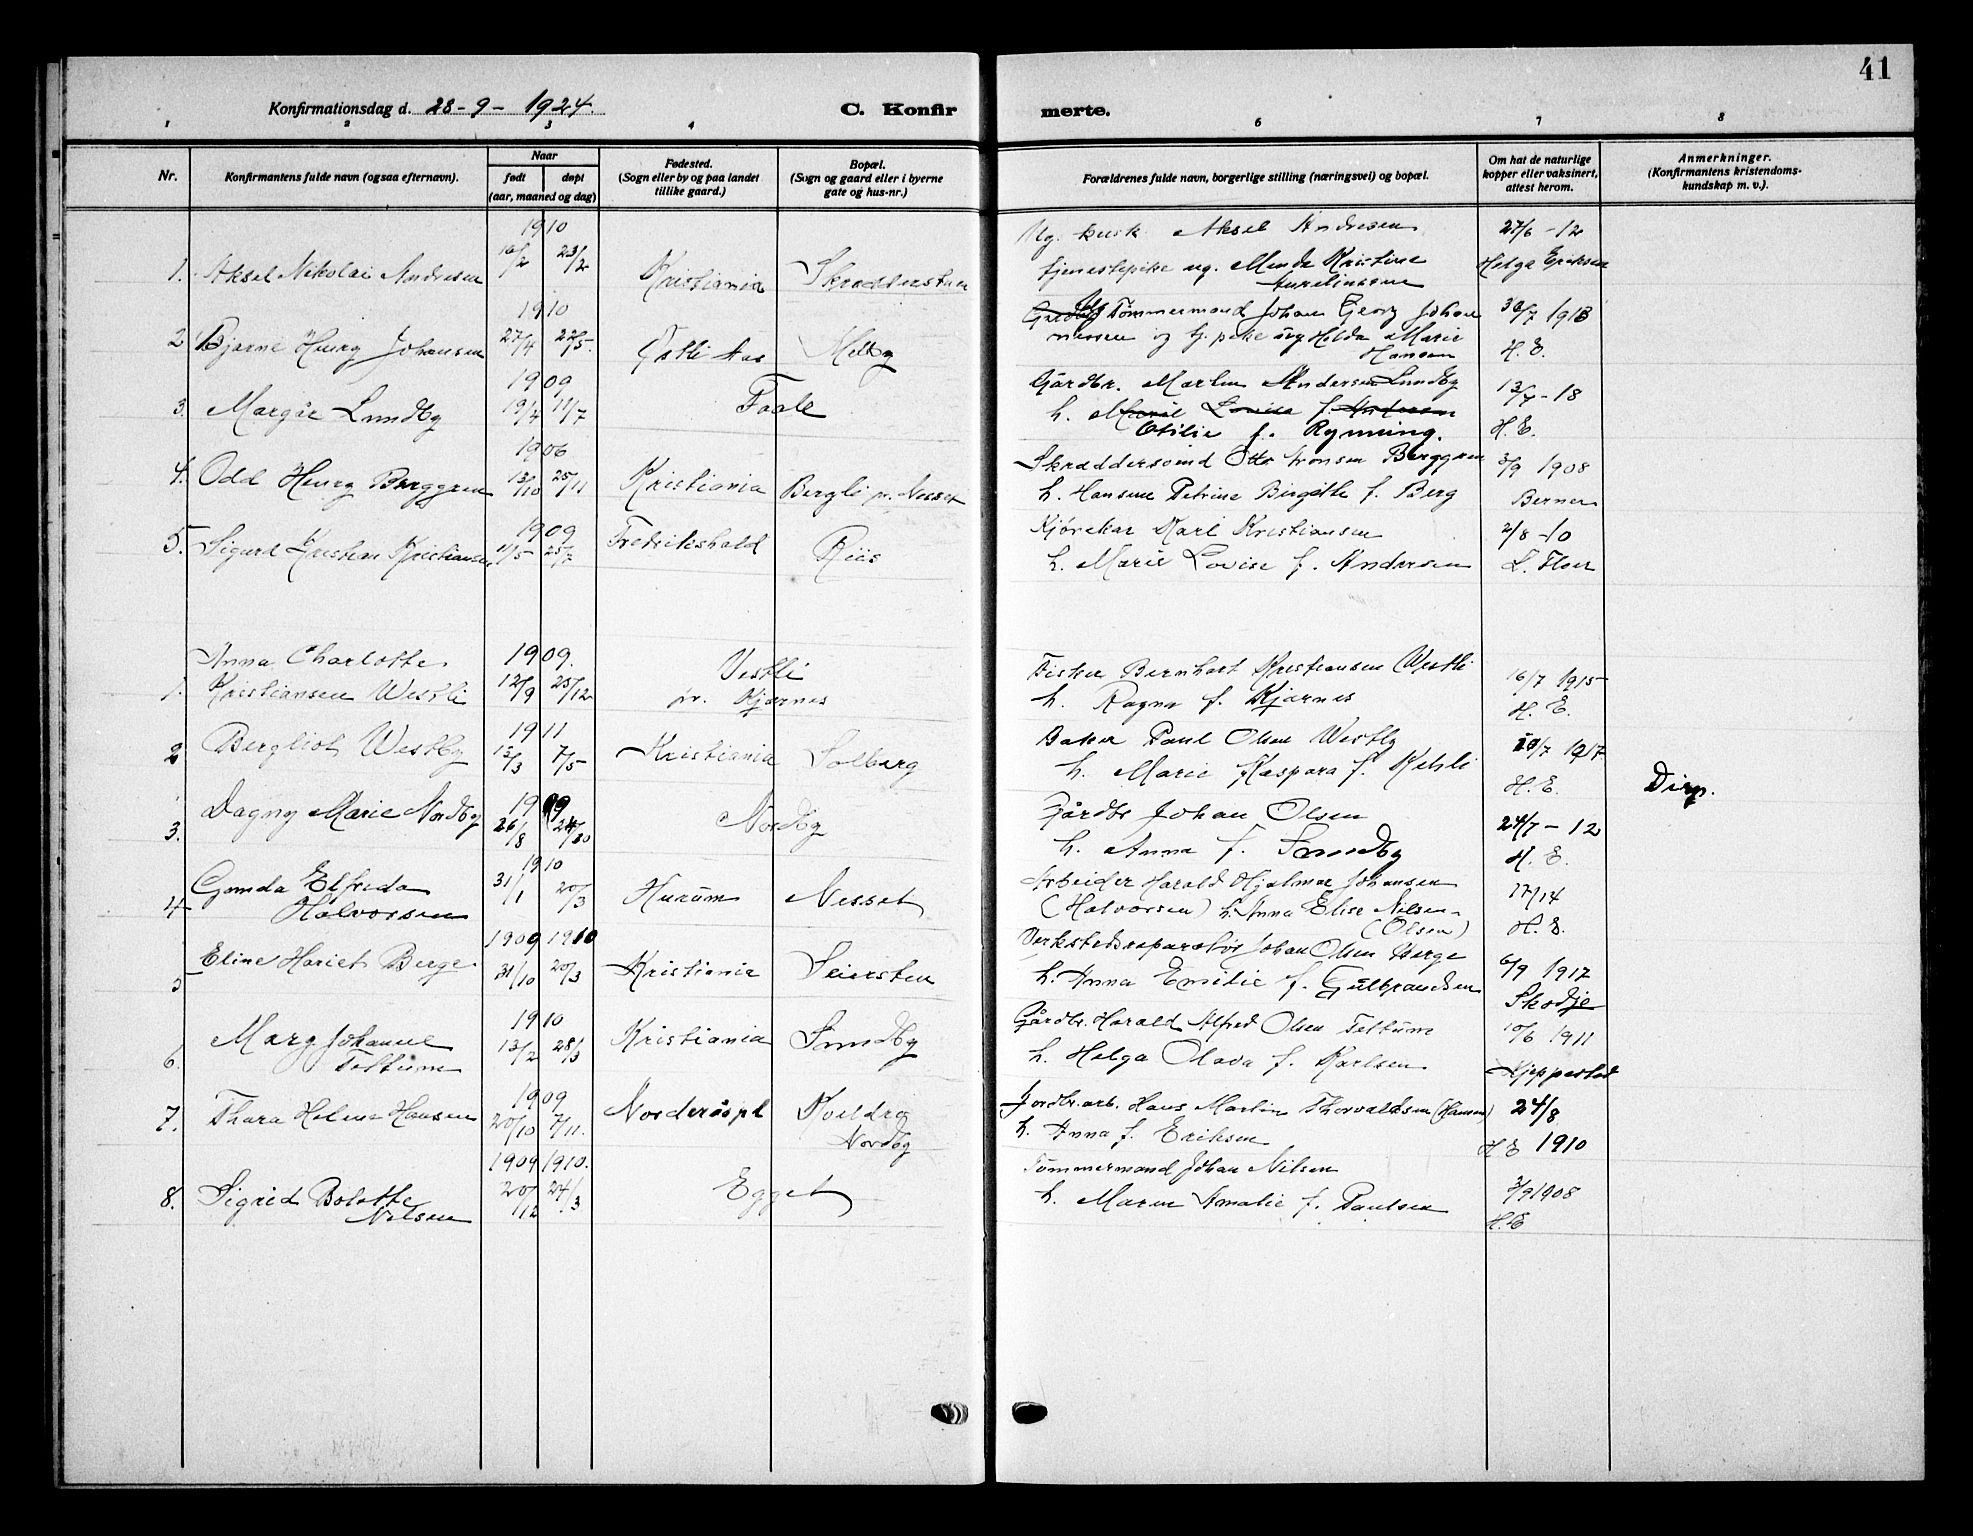 41
Konfirmationsdag d. 28-9-1924.
C. Konfir
merte.
1 2 3 4 6 7 8
Nr.
Konfirmantens fulde navn (ogsaa efternavn).
Naar
født
døpt
(aar, maaned og dag)
Fødested.
(Sogn eller by og paa landet
tillike gaard.)
Bopæl.
(Sogn og gaard eller i byerne
gate og hus-nr.)
Forældrenes fulde navn, borgerlige stilling (næringsvei) og bopæl.
Om hat de naturlige
kopper eller vaksinert,
attest herom.
Anmerkninger.
(Konfirmantens kristendoms-
kundskap m. v.).
1910
Ug. kusk Aksel Andresen 27/6 -12
1. Aksel Nikolai Andresen 16/2 23/2 Kristiania
tjenestepike ug. Kristine Helga Eriksen
1910
Tømmermand Johan Georg Johan 30/7 1913
2 Bjarne Henry Johansen 27/4 22/5. Melby
nessen og tj. pike Hilda Marie
Hansen H. E.
1909
3. Lundby 19/4 11/7
Gårdbr. Martin Andersen Lundby 13/7-18
h. Louise f. Andersen
Otilie f. Rynning. H. E.
1906
4. Odd Henry Berggren 13/10 25/11 Kristiania Bergli pr. Nesset
Skræddersvend Otto Berggren 3/9 1908
h. Petrine Birgitte f. Berg Berner
1909
5. Sigurd Kristian Kristiansen 11/5 25/7 Fredrikshald Riis
Karl Kristiansen 2/8 -10
h. Marie Lovise f. Andersen
Anna Charlotte 1909. Vestli
1. Kristiansen Westli 12/9 25/12 pr. Kjærnes
Fisker Bernhart Kristiansen Westli 16/7 1915
h. Ragna f. Kjærnes H. E.
1911
2 Bergliot Westby 7/5 Kristiania Solberg
Baker Paul Olsen Westby 1917
h. Marie Kaspara f. H. E.
3. Dagny Marie Nordby 26/8 Nordby
Gårdbr Johan Olsen 24/7-12
h. Anna f. Sundby H. E.
1910
4 Elfrida 31/1 20/3 Hurum Nesset
Halvorsen
Arbeider Harald Hjalmar Johansen
(Halvorsen) h. Anna Elise Nilsen
(Olsen) H. E.
1909 1910
5 Eline Hariet Berge 31/10 20/3 Kristiania Seiersten
Verkstedsreparatør Johan Olsen Berge 6/9 1917
h. Anna Emilie f. Gulbrandsen Skodje
1910
6. Mary Johanne 13/2 28/3 Kristiania Sundby
Feltum
Gårdbr. Harald Alfred Olsen Feltum 10/6 1911
h. Helga Olava f. Karlsen
1909
7. Thara Helene Hansen 20/10 7/11. Norderåspl
Nordby
Jordbr.arb. Hans Martin Thorvaldsen (Hansen) 24/8
h. Anna f. Eriksen H E 1910
1909 1910.
8. Sigrid Bolette 20/12 24/3 Egget
Nilsen
Tømmermand Johan Nilsen
h. Maren Amalie f. Paulsen 3/9 1908
H. E